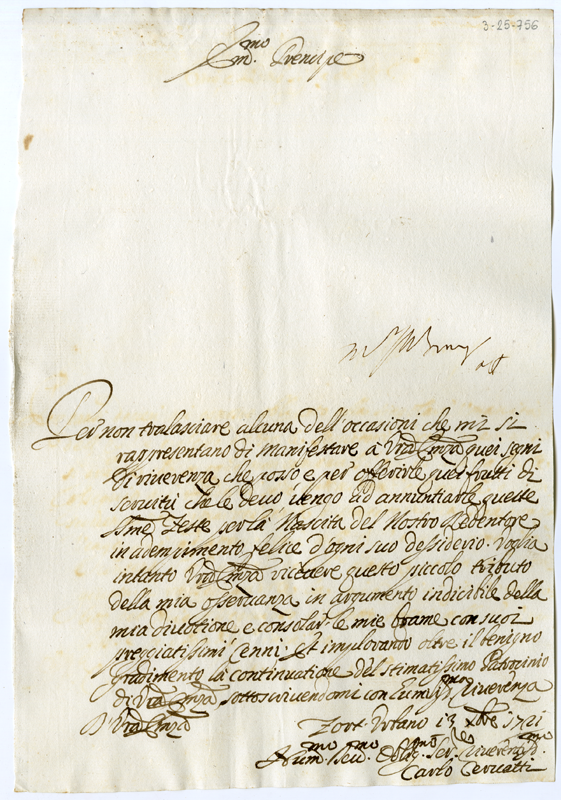 3-25-756
Em.mo Prencipe
Per non tralasciare alcuna dell'occasioni che mi si
rappresentano di manifestare à Vra Emza quei segni
di riverenza che posso e per offerirle quei frutti di
servitù che le devo vengo ad annuntiarle queste
SSme Feste per la Nascita del Nostro Redentore
in adempimento felice d'ogni suo dessiderio. Voglia
intanto Vra Emza ricevere questo piccolo tributo
della mia osservanza in argomento indicibile della
mia divotione e consolar le mie brame con suoi
preggiatissimi Cenni: Et implorando oltre il benigno
gradimento la continuatione del stimatissimo Patrocinio
di Vra Emza sottoscrivendomi con humma riverenza
D Vra Emza
Fort Urbano 13 Xbre 1721
Hum.mo Dev.mo Oblig.mo Ser.re Riverent.mo
Carlo